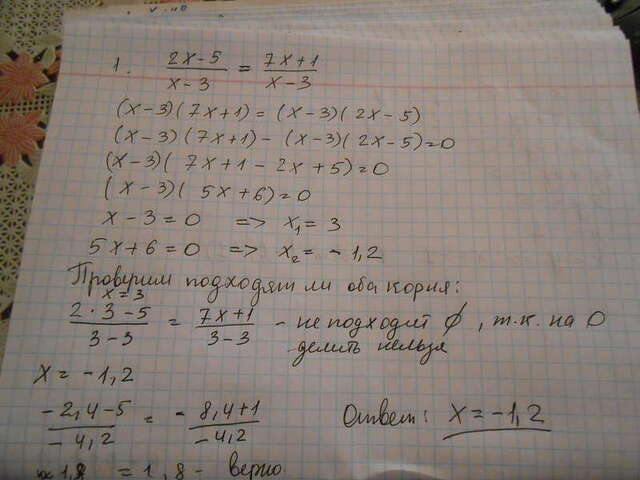 1. (2x-5)/(x-3) = (7x+1)/(x-3)
(x-3)(7x+1) = (x-3)(2x-5)
(x-3)(7x+1) - (x-3)(2x-5)=0
(x-3)(7x+1-2x+5)=0
(x-3)(5x+6)=0
x-3=0 => x₁=3
5x+6=0 => x₂= -1,2
Проверим подходят ли оба корня:
x=3
(2·3-5)/(3-3) = (7x+1)/(3-3) - не подходит ∅, т.к. на 0
делить нельзя
x= -1,2
(-2,4-5)/(-4,2) = -(8,4+1)/(-4,2)
Ответ: x=-1,2
1,8 = 1,8 - верно